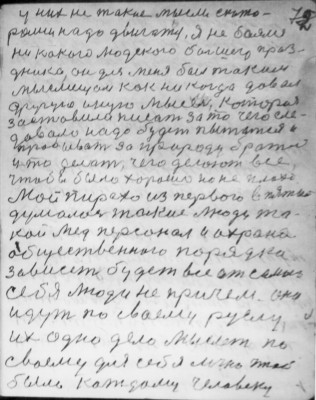 у них не такие мысли кото-
рами надо двигать, я не баяли 72
ни какого людского большего праз-
дника он для меня был таким
мыслящом как никогда давал
другую иную мысль, которая
заставила писат за то чего сле-
давало надо будет пытатся и
за природу братся
и что делат, чего делают все
чтоб и было хорошо но не плохо
Мой из первого в пятый
думалах такие люди та-
кой мед персонал и охрана
общественного порядка
зависет будет все от самих
себя люди не причем. они
идут по своему руслу
их одно дело мыслет по
своему для себя лично чтоб
было каждому человеку